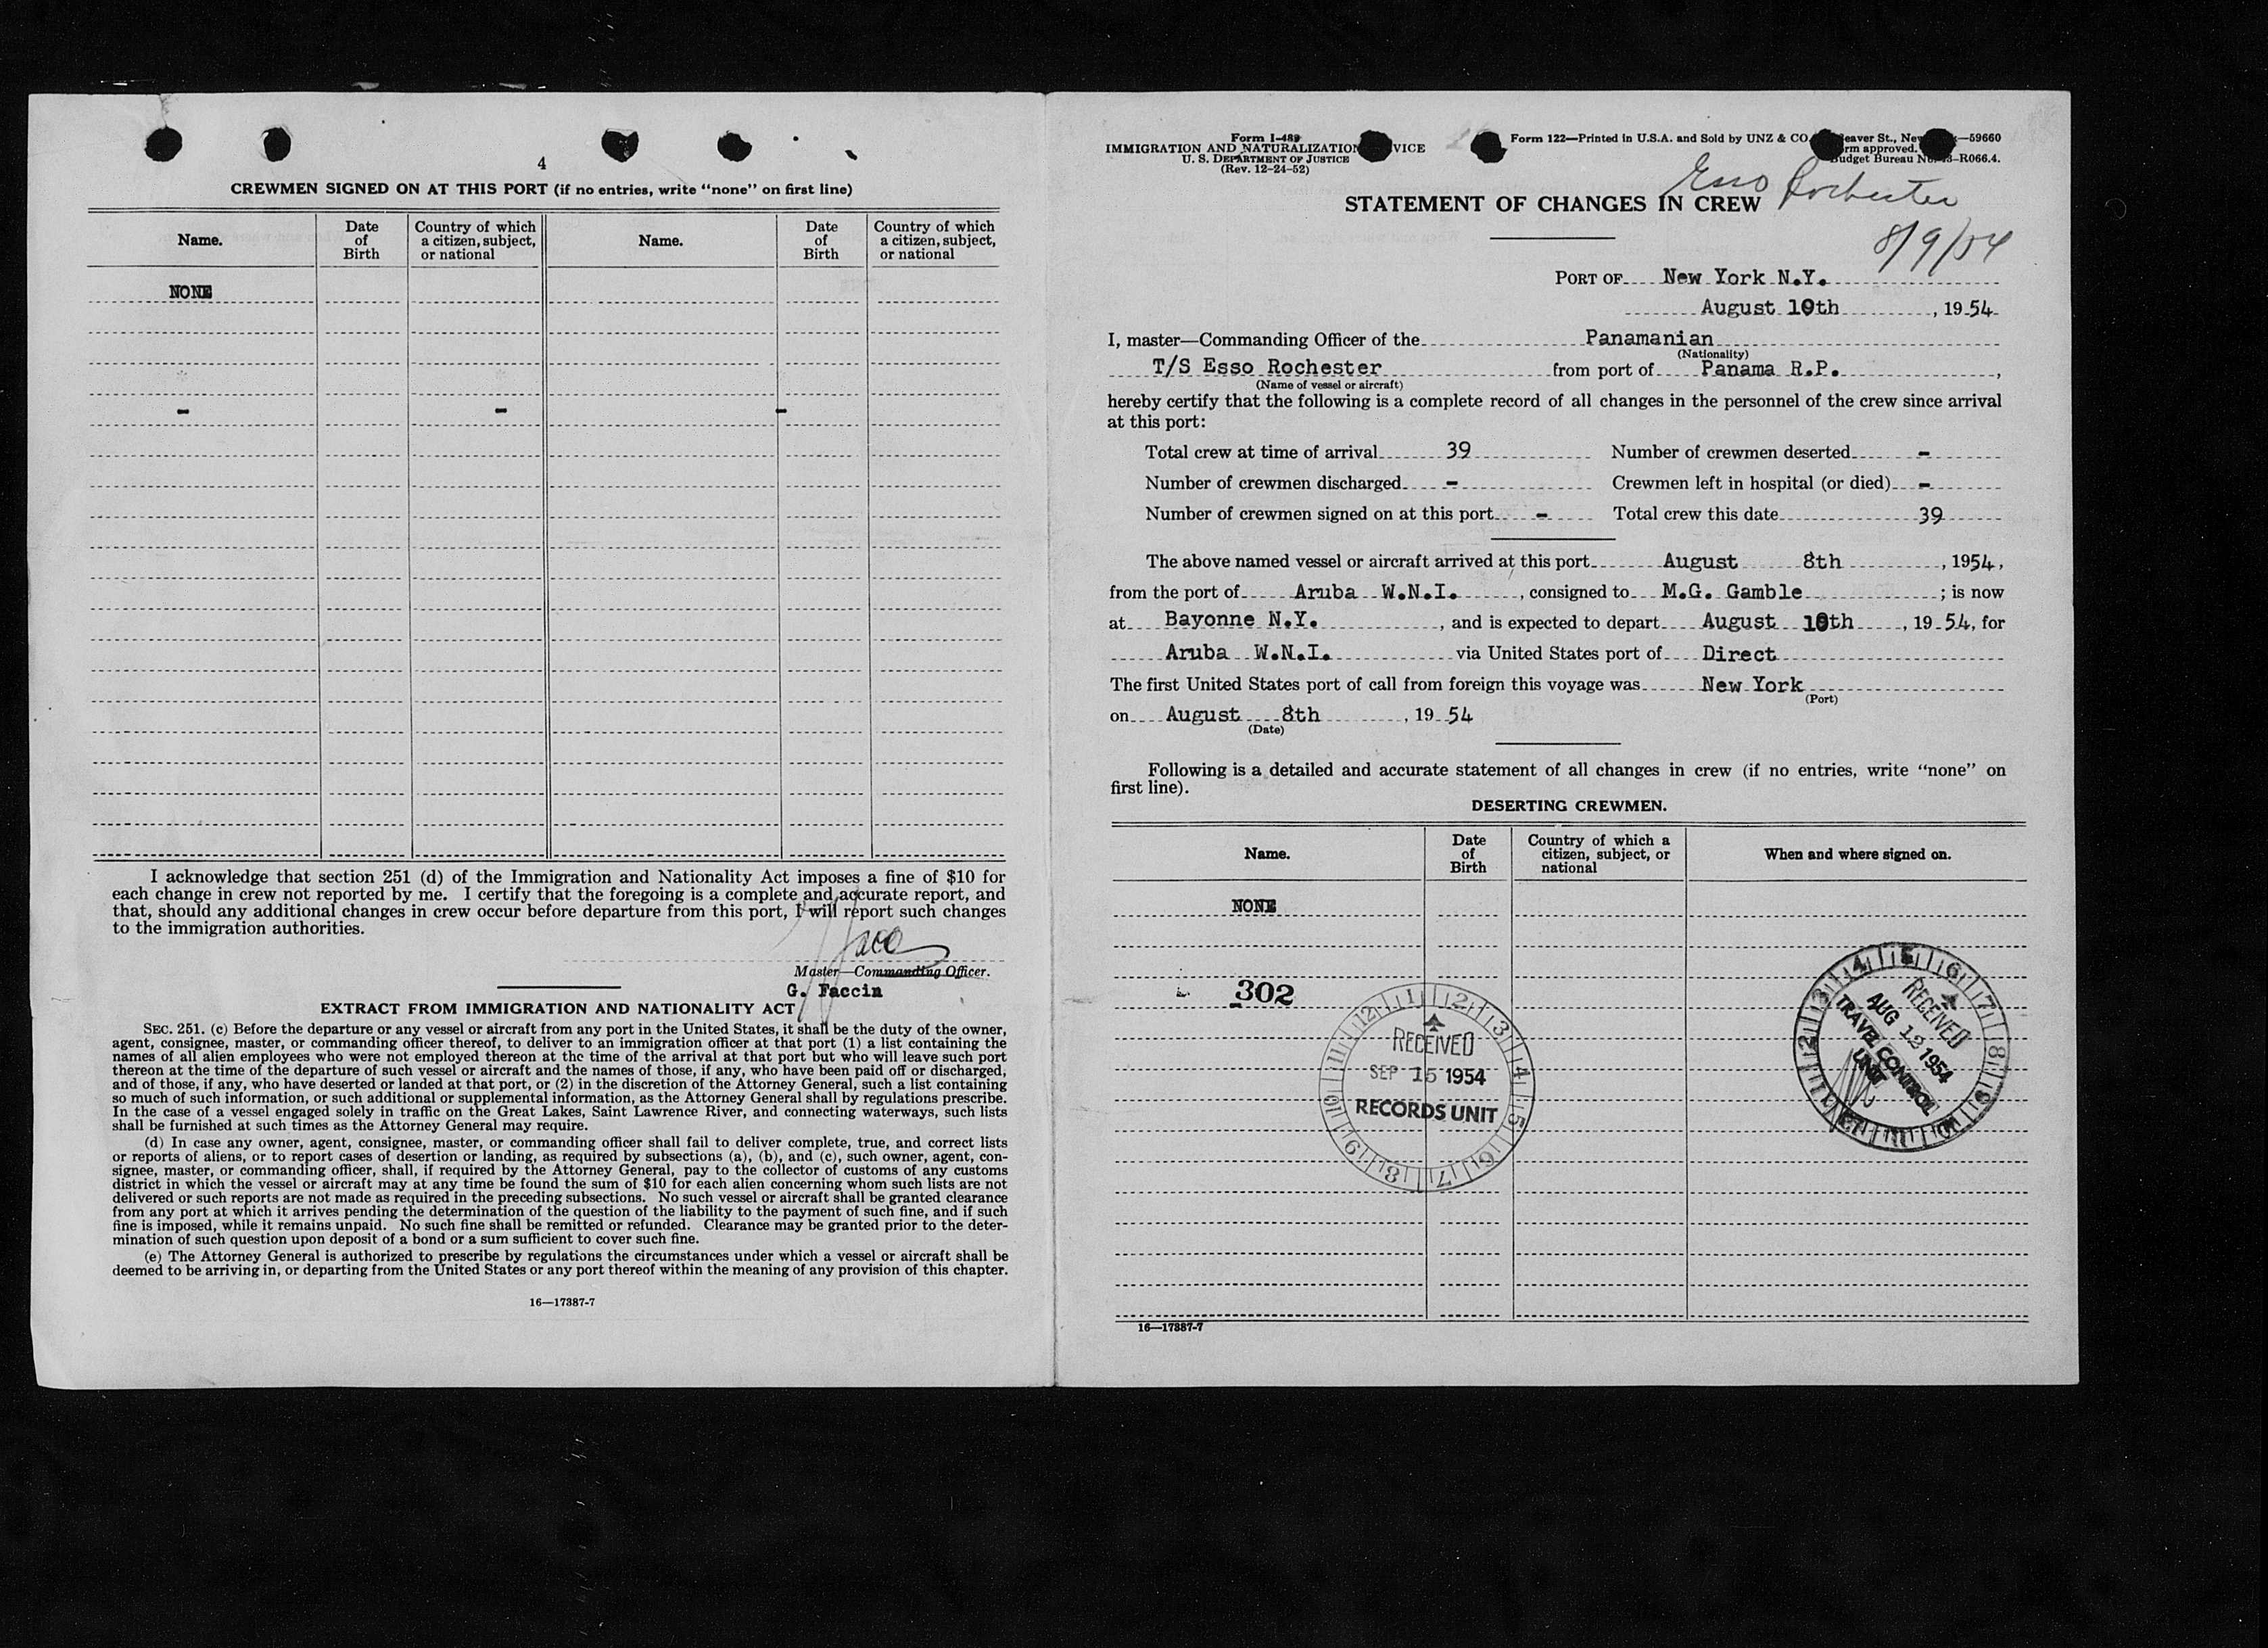 4
CREWMEN SIGNED ON AT THIS PORT (if no entries, write “none” on first line)
Name.
Date of Birth
Country of which a citizen, subject, or national
Name.
Date of Birth
Country of which a citizen, subject, or national
NONE
-
-
-
I acknowledge that section 251 (d) of the Immigration and Nationality Act imposes a fine of $10 for
each change in crew not reported by me. I certify that the foregoing is a complete and accurate report, and
that, should any additional changes in crew occur before departure from this port, I will report such changes
to the immigration authorities.
Master—Commanding Officer.
G. Faccin
EXTRACT FROM IMMIGRATION AND NATIONALITY ACT
SEC. 251. (c) Before the departure or any vessel or aircraft from any port in the United States, it shall be the duty of the owner,
agent, consignee, master, or commanding officer thereof, to deliver to an immigration officer at that port (1) a list containing the
names of all alien employees who were not employed thereon at the time of the arrival at that port but who will leave such port
thereon at the time of the departure of such vessel or aircraft and the names of those, if any, who have been paid off or discharged,
and of those, if any, who have deserted or landed at that port, or (2) in the discretion of the Attorney General, such a list containing
so much of such information, or such additional or supplemental information, as the Attorney General shall by regulations prescribe.
In the case of a vessel engaged solely in traffic on the Great Lakes, Saint Lawrence River, and connecting waterways, such lists
shall be furnished at such times as the Attorney General may require.
(d) In case any owner, agent, consignee, master, or commanding officer shall fail to deliver complete, true, and correct lists
or reports of aliens, or to report cases of desertion or landing, as required by subsections (a), (b), and (c), such owner, agent, con-
signee, master, or commanding officer, shall, if required by the Attorney General, pay to the collector of customs of any customs
district in which the vessel or aircraft may at any time be found the sum of $10 for each alien concerning whom such lists are not
delivered or such reports are not made as required in the preceding subsections. No such vessel or aircraft shall be granted clearance
from any port at which it arrives pending the determination of the question of the liability to the payment of such fine, and if such
fine is imposed, while it remains unpaid. No such fine shall be remitted or refunded. Clearance may be granted prior to the deter-
mination of such question upon deposit of a bond or a sum sufficient to cover such fine.
(e) The Attorney General is authorized to prescribe by regulations the circumstances under which a vessel or aircraft shall be
deemed to be arriving in, or departing from the United States or any port thereof within the meaning of any provision of this chapter.
16—17387-7
Form I-489
IMMIGRATION AND NATURALIZATION
U. S. DEPARTMENT OF JUSTICE
(Rev. 12-24-52)
Form 122—Printed in U.S.A. and Sold by UNZ & CO
St., —59660
approved.
Budget Bureau -R066.4.
Esso Rochester
8/9/54
STATEMENT OF CHANGES IN CREW
PORT OF New York N.Y.
August 10th, 1954
I, master—Commanding Officer of the Panamanian
(Nationality)
T/S Esso Rochester from port of Panama R.P.,
(Name of vessel or aircraft)
hereby certify that the following is a complete record of all changes in the personnel of the crew since arrival
at this port:
Total crew at time of arrival 39 Number of crewmen deserted -
Number of crewmen discharged - Crewmen left in hospital (or died) -
Number of crewmen signed on at this port - Total crew this date 39
The above named vessel or aircraft arrived at this port August 8th, 1954,
from the port of Aruba W.N.I., consigned to M.G. Gamble; is now
at Bayonne N.Y., and is expected to depart August 10th, 1954, for
Aruba W.N.I. via United States port of Direct
The first United States port of call from foreign this voyage was New York
(Port)
on August 8th, 1954
(Date)
Following is a detailed and accurate statement of all changes in crew (if no entries, write “none” on
first line).
DESERTING CREWMEN.
Name.
Date of Birth
Country of which a citizen, subject, or national
When and where signed on.
NONE
302
1 2 3 4 5 6 7 8 9 10 11 12
RECEIVED
SEP 15 1954
RECORDS UNIT
1 2 3 4 5 6 7 8 9 10 11 12
RECEIVED
AUG 12 1954
TRAVEL CONTROL
UNIT
16—17387-7